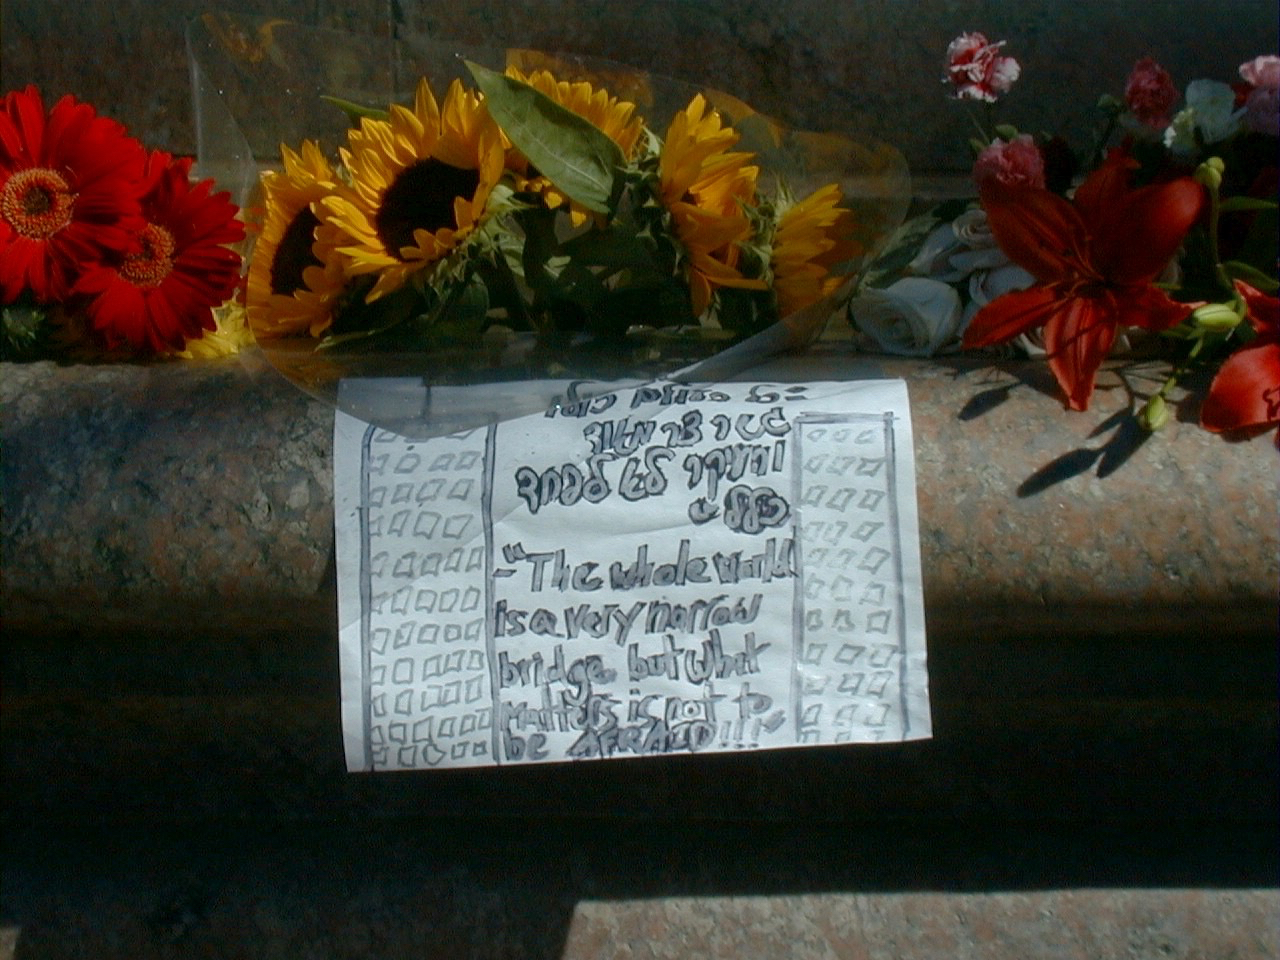 כל העולם כולו
גשר צר מאוד
והעיקר לא לפחד
כלל
-"The whole world
is a very narrow
bridge but what
matters is not to
be AFRAID!!!"